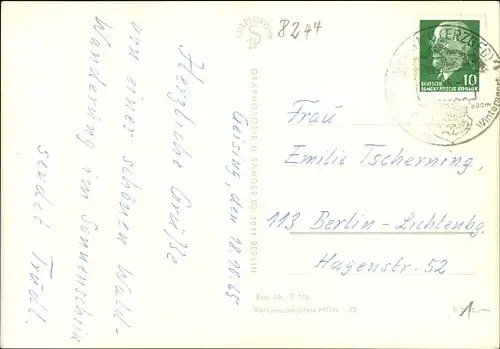 8244
Geising, den 18.10.65
Herzliche Grüße
von einer schönen Wald-
wanderung im Sonnenschein
sendet Trudl.
GRAPHOKOPIE H. SANDER KG, 1071 BERLIN
10
DEUTSCHE
DEMOKRATISCHE REPUBLIK
(ERZGEB)
600m
Wintersport
Frau
Emilie Tscherning,
113 Berlin-Lichtenbg.
Hagenstr. 52
Best.-Nr.
Verbraucherpreis MDN
1-